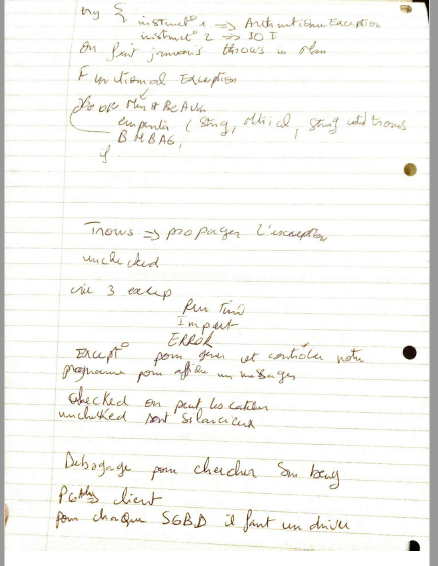 try {
instruct° 1 => ArithmétiqueException
instruct° 2 => IO E
On fait jamais throws in Main
Functional Exception
emprunter (String, String throws
if
Throws => propager l'exception
unchecked
une 3 excep
Run Time
Import
ERROR
Except° pour gérer et contrôler notre
programme pour affiche un messages
checked on peut les catcher
unchecked sont silencieux
Debogage pour chercher un beug
client
pour chaque SGBD il faut un driver